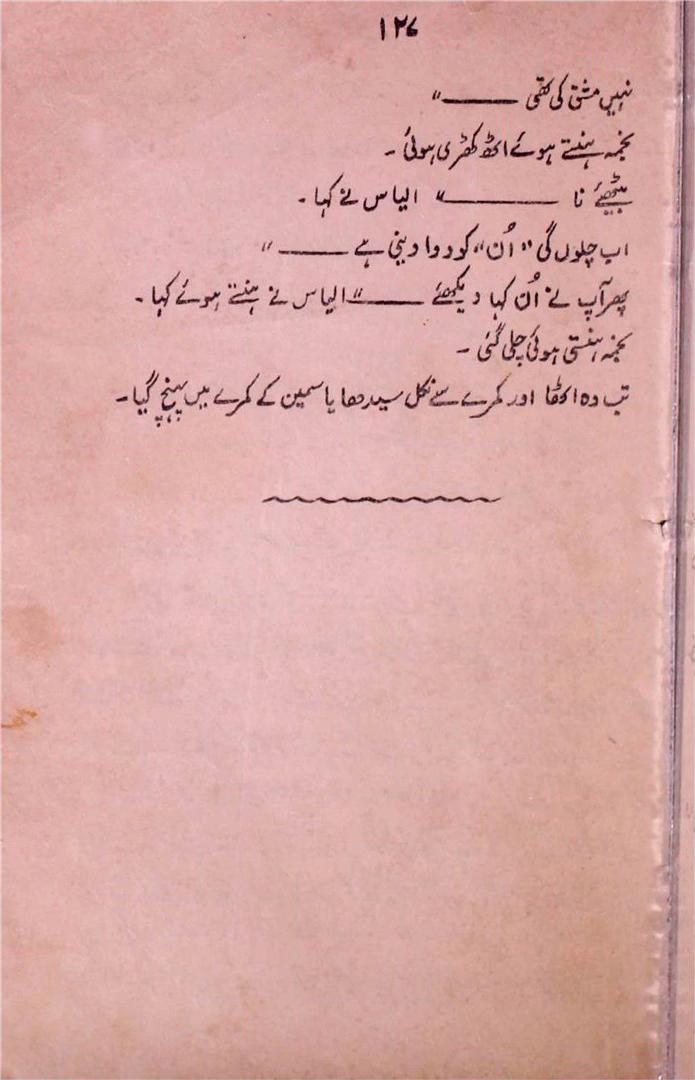 ۱۲۷
نہیں مشق کی تھی ——— "
نجمہ ہنستے ہوئے اٹھ کھڑی ہوئی ۔
بیٹھئے نا ——— " الیاس نے کہا ۔
اب چلوں گی "اُن" کو دوا دینی ہے ——— "
پھر آپ نے اُن کہا دیکھئے ——— " الیاس نے ہنستے ہوئے کہا ۔
نجمہ ہنستی ہوئی چلی گئی ۔
تب وہ اٹھا اور کمرے سے نکل سیدھا یاسمین کے کمرے میں پہنچ گیا ۔